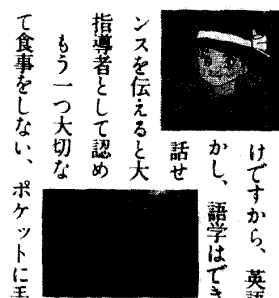 けですから、英語
かし、語学はでき
話せ
ンスを伝えると大
指導者として認め
もう一つ大切な
て食事をしない、ポケットに手